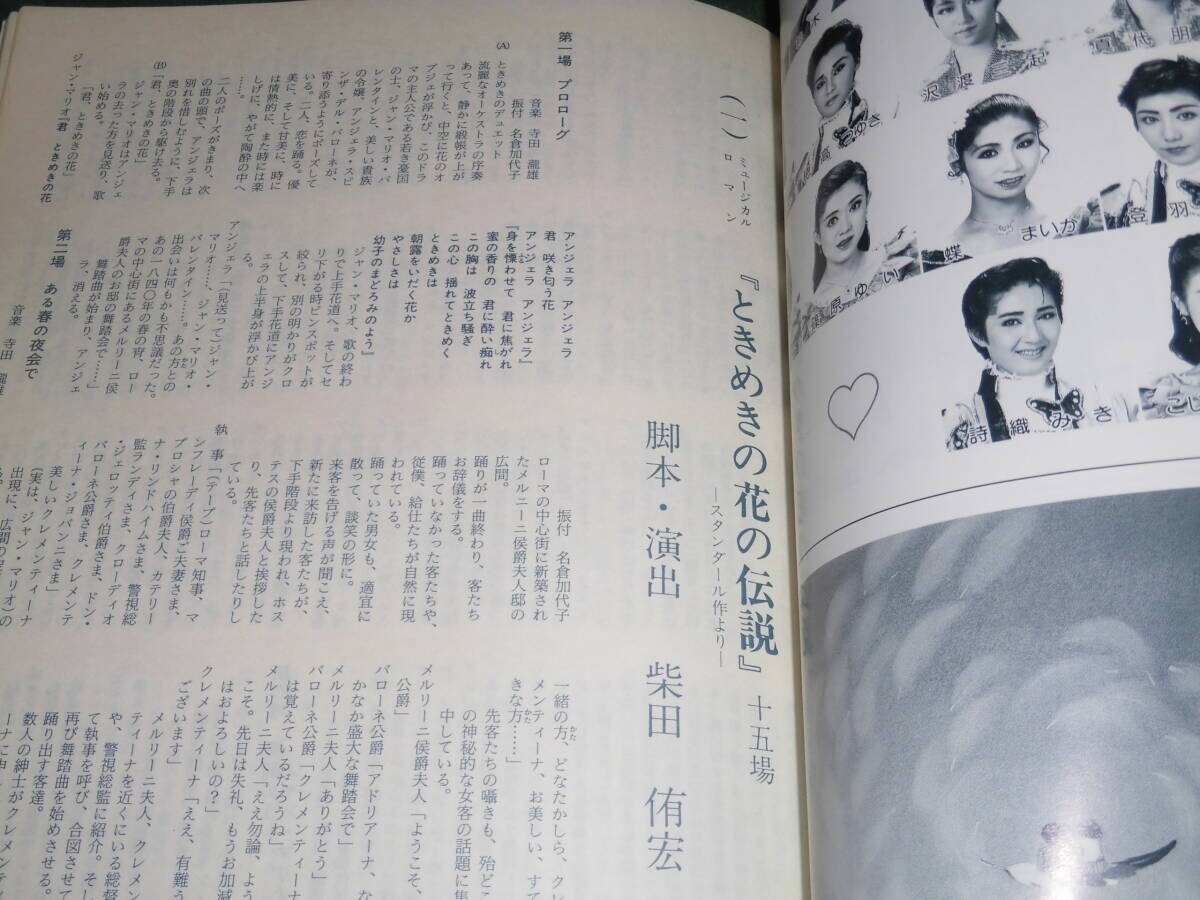 (一)ミュージカルロマン
『ときめきの花の伝説』十五場
―スタンダール作より―
脚本・演出 柴田 侑宏
第一場 プロローグ
音楽 寺田 瀧雄
振付 名倉加代子
(A) ときめきのデュエット
流麗なオーケストラの序奏
あって、静かに緞帳が上が
って行くと、中空に花のオ
ブジェが浮かび、このドラ
マの主人公である若き憂国
の士、ジャン・マリオ・バ
レンタインと、美しい貴族
の令嬢、アンジェラ・スピ
ンザ・デル・バローネが、
寄り添うようにポーズして
いる。二人、恋を踊る。優
美に、そして甘美に、時に
は情熱的に、また時には楽
しげに、やがて陶酔の中へ
……。
二人のポーズがきまり、次
の曲の頭で、アンジェラは
別れを惜しむように、下手
奥の階段から駆け去る。
(B) 『君、ときめきの花』
ジャン・マリオはアンジェ
ラの去った方を見送り、歌
い始める。
「君、ときめきの花」
ジャン・マリオ『君 ときめきの花
アンジェラ アンジェラ
君 咲き匂う花
アンジェラ アンジェラ』
『身を慄わせて 君に焦がれ
蜜の香りの 君に酔い痴れ
この胸は 波立ち騒ぎ
この心 揺れてときめく
ときめきは
朝露をいだく花か
やさしさは
幼子のまどろみのよう』
ジャン・マリオ、歌の終わ
りで上手花道へ。そしてセ
リ下がる時ピンスポットが
絞られ、別の明かりがクロ
スして、下手花道にアンジ
ェラの上半身が浮かび上が
る。
アンジェラ「(見送って)ジャン・
マリオ……、ジャン・マリオ・
バレンタイン……。あの方との
出会いは何もかも不思議だった。
あの一八四〇年の春の宵、ロー
マの中心街にあるメルリーニ侯
爵夫人のお邸の舞踏会で……」
舞踏曲が始まり、アンジェ
ラ、消える。
第二場 ある春の夜会で
音楽 寺田 瀧雄
振付 名倉加代子
ローマの中心街に新築され
たメルニーニ侯爵夫人邸の
広間。
踊りが一曲終わり、客たち
お辞儀をする。
踊っていなかった客たちや、
従僕、給仕たちが自然に現
われている。
踊っていた男女も、適宜に
散って、談笑の形に。
来客を告げる声が聞こえ、
新たに来訪した客たちが、
下手階段より現われ、ホス
テスの侯爵夫人と挨拶した
り、先客たちと話したりし
ている。
執事「(テープ)ローマ知事、マ
ンフレーディ侯爵ご夫妻さま、
プロシャの伯爵夫人、カテリー
ナ・リンドハイムさま、警視総
監ランディさま、クローディオ
・ジェロッティ伯爵さま、ドン・
バローネ公爵さま、クレメンテ
ィーナ・ジョバンニさま」
美しいクレメンティーナ
(実は、ジャン・マリオ)の
出現に、広間の
一緒の方、どなたかしら、クレ
メンティーナ、お美しい、すて
きな方……」
先客たちの囁きも、殆どこ
の神秘的な女客の話題に集
中している。
メルリーニ侯爵夫人「ようこそ、
公爵」
バローネ公爵「アドリアーナ、な
かなか盛大な舞踏会で」
メルリーニ夫人「ありがとう」
バローネ公爵「クレメンティーナ
は覚えているだろうね」
メルリーニ夫人「ええ勿論、よう
こそ。先日は失礼、もうお加減
はおよろしいの?」
クレメンティーナ「ええ、有難う
ございます」
メルリーニ夫人、クレメン
ティーナを近くにいる総督
や、警視総監に紹介。そし
て執事を呼び、合図させて
再び舞踏曲を始めさせる。
踊り出す客達。
数人の紳士がクレメンティ
沢渡 起
真代 朋
つゆき
まいか 蝶
登 羽
篠原ゆい
詩織みき
こし